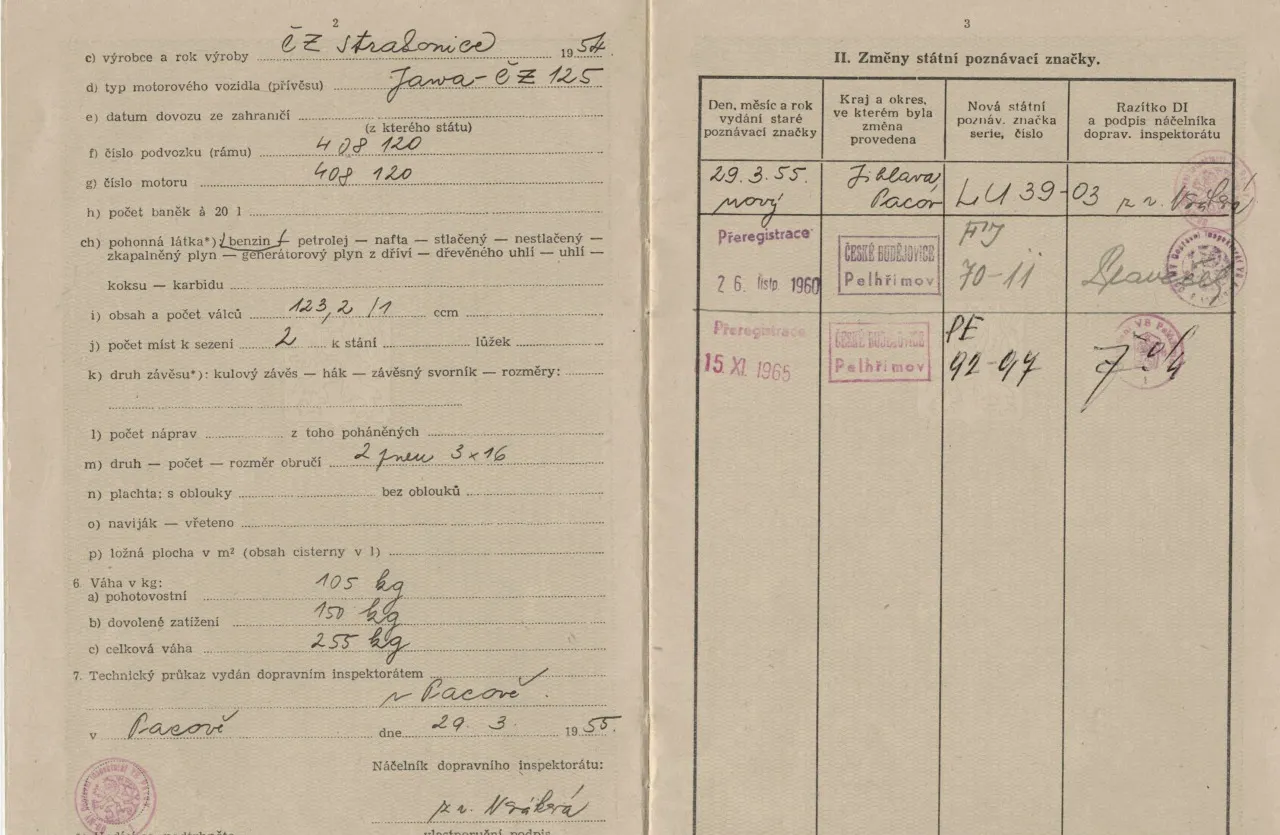 2
c) výrobce a rok výroby ČZ Strakonice 1954
d) typ motorového vozidla (přívěsu) Jawa - ČZ 125
e) datum dovozu ze zahraničí
(z kterého státu)
f) číslo podvozku (rámu) 408 120
g) číslo motoru 408 120
h) počet baněk à 20 l
ch) pohonná látka*) / benzin / — petrolej — nafta — stlačený — nestlačený —
zkapalněný plyn — generátorový plyn z dříví — dřevěného uhlí — uhlí —
koksu — karbidu
i) obsah a počet válců 123,2 / 1 ccm
j) počet míst k sezení 2 k stání lůžek
k) druh závěsu*): kulový závěs — hák — závěsný svorník — rozměry:
l) počet náprav z toho poháněných
m) druh — počet — rozměr obručí 2 pneu 3x16
n) plachta: s oblouky bez oblouků
o) naviják — vřeteno
p) ložná plocha v m² (obsah cisterny v l)
6. Váha v kg:
a) pohotovostní 105 kg
b) dovolené zatížení 150 kg
c) celková váha 255 kg
7. Technický průkaz vydán dopravním inspektorátem
v Pacově.
v Pacově dne 29. 3. 1955.
Náčelník dopravního inspektorátu:
z. v.
vlastnoruční podpis
3
II. Změny státní poznávací značky.
Den, měsíc a rok
vydání staré
poznávací značky
Kraj a okres,
ve kterém byla
změna
provedena
Nová státní
poznáv. značka
serie, číslo
Razítko DI
a podpis náčelníka
doprav. inspektorátu
29. 3. 55. Jihlava LU 39-03 z. v.
nový Pacov
Přeregistrace ČESKÉ BUDĚJOVICE
26. listp. 1960 Pelhřimov 70-11
Přeregistrace ČESKÉ BUDĚJOVICE PE
15. XI. 1965 Pelhřimov 92-97